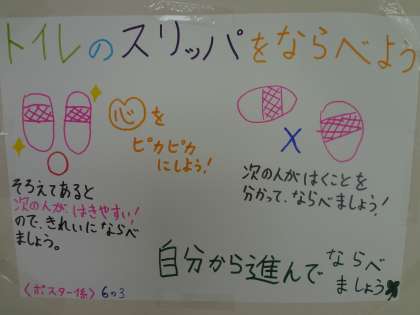 トイレのスリッパをならべよう
心を
ピカピカ
にしよう!
そろえてあると
次の人が、はきやすい!
ので、きれいにならべ
ましょう。
X
次の人がはくことを
分かって、ならべましょう!
自分から進んでならべ
ましょう
〈ポスター係〉6の3